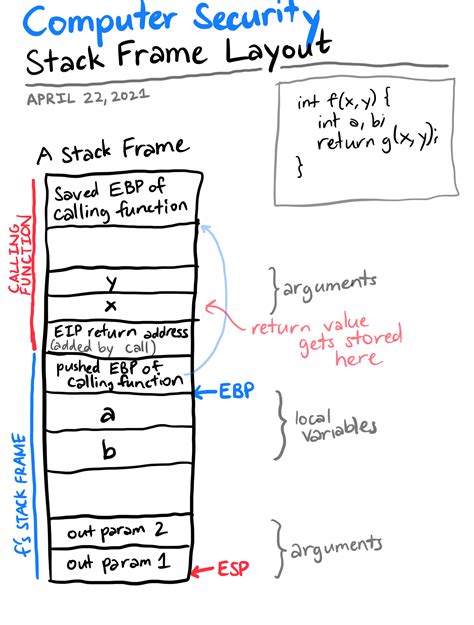 Computer Security
Stack Frame Layout
APRIL 22, 2021
int f(x,y) {
int a, b;
return g(x,y);
}
A Stack Frame
CALLING
FUNCTION
Saved EBP of
calling function
y
x
arguments
EIP return address
(added by call)
return value
gets stored
here
pushed EBP of
calling function
EBP
f's STACK FRAME
a
b
local
variables
out param 2
out param 1
arguments
ESP